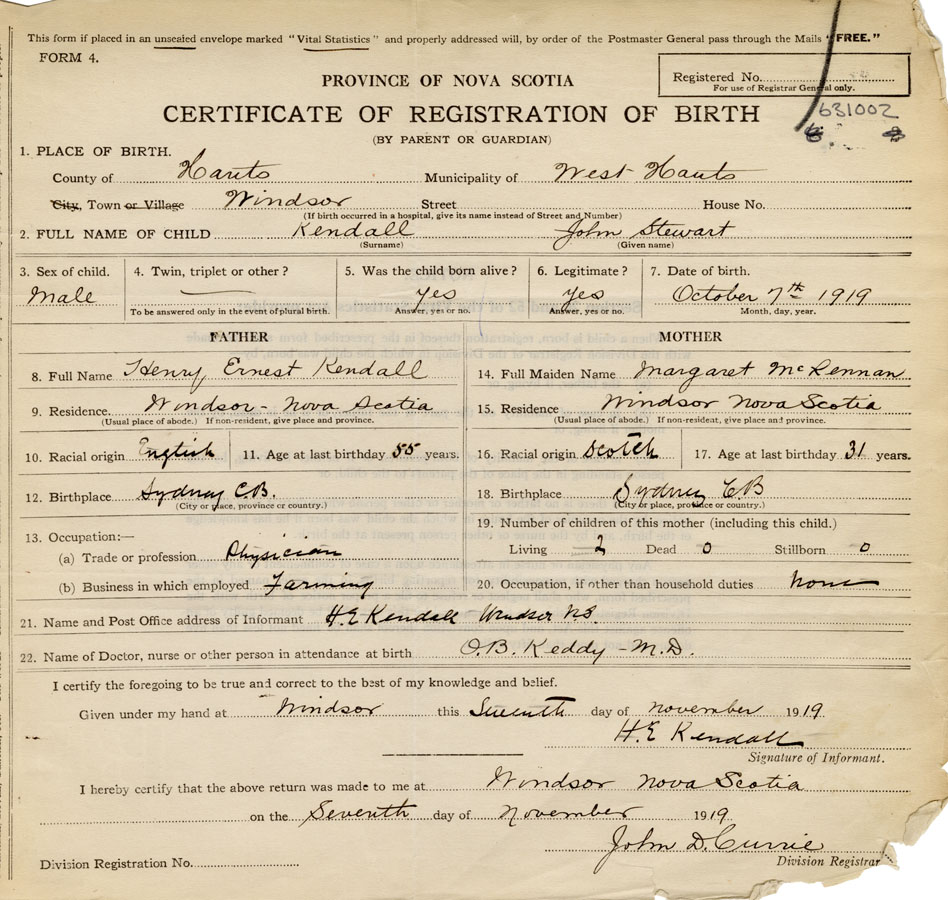 This form if placed in an unsealed envelope marked "Vital Statistics" and properly addressed will, by order of the Postmaster General pass through the Mails "FREE."
FORM 4.
Registered No.
For use of Registrar General only.
PROVINCE OF NOVA SCOTIA
CERTIFICATE OF REGISTRATION OF BIRTH
631002
(BY PARENT OR GUARDIAN)
1. PLACE OF BIRTH.
County of Hants Municipality of West Hants
City, Town or Village Windsor Street House No.
(If birth occurred in a hospital, give its name instead of Street and Number)
2. FULL NAME OF CHILD Kendall John Stewart
(Surname) (Given name)
3. Sex of child. 4. Twin, triplet or other? 5. Was the child born alive? 6. Legitimate? 7. Date of birth.
Male yes yes October 7th 1919
To be answered only in the event of plural birth. Answer, yes or no. Answer, yes or no. Month, day, year.
FATHER MOTHER
8. Full Name Henry Ernest Kendall 14. Full Maiden Name Margaret McKennan
9. Residence. Windsor - Nova Scotia 15. Residence Windsor Nova Scotia
(Usual place of abode.) If non-resident, give place and province. (Usual place of abode.) If non-resident, give place and province.
10. Racial origin English 11. Age at last birthday 55 years. 16. Racial origin Scotch 17. Age at last birthday 31 years.
12. Birthplace Sydney C.B. 18. Birthplace Sydney C.B
(City or place, province or country.) (City or place, province or country.)
13. Occupation:— 19. Number of children of this mother (including this child.)
(a) Trade or profession Physician Living 2 Dead 0 Stillborn 0
(b) Business in which employed Farming 20. Occupation, if other than household duties none
21. Name and Post Office address of Informant H.E Kendall Windsor N.S.
22. Name of Doctor, nurse or other person in attendance at birth O.B. Keddy - M.D.
I certify the foregoing to be true and correct to the best of my knowledge and belief.
Given under my hand at Windsor this Seventh day of november 1919.
H.E Kendall
Signature of Informant.
I hereby certify that the above return was made to me at Windsor Nova Scotia
on the Seventh day of November 1919
John D. Currie
Division Registration No. Division Registrar